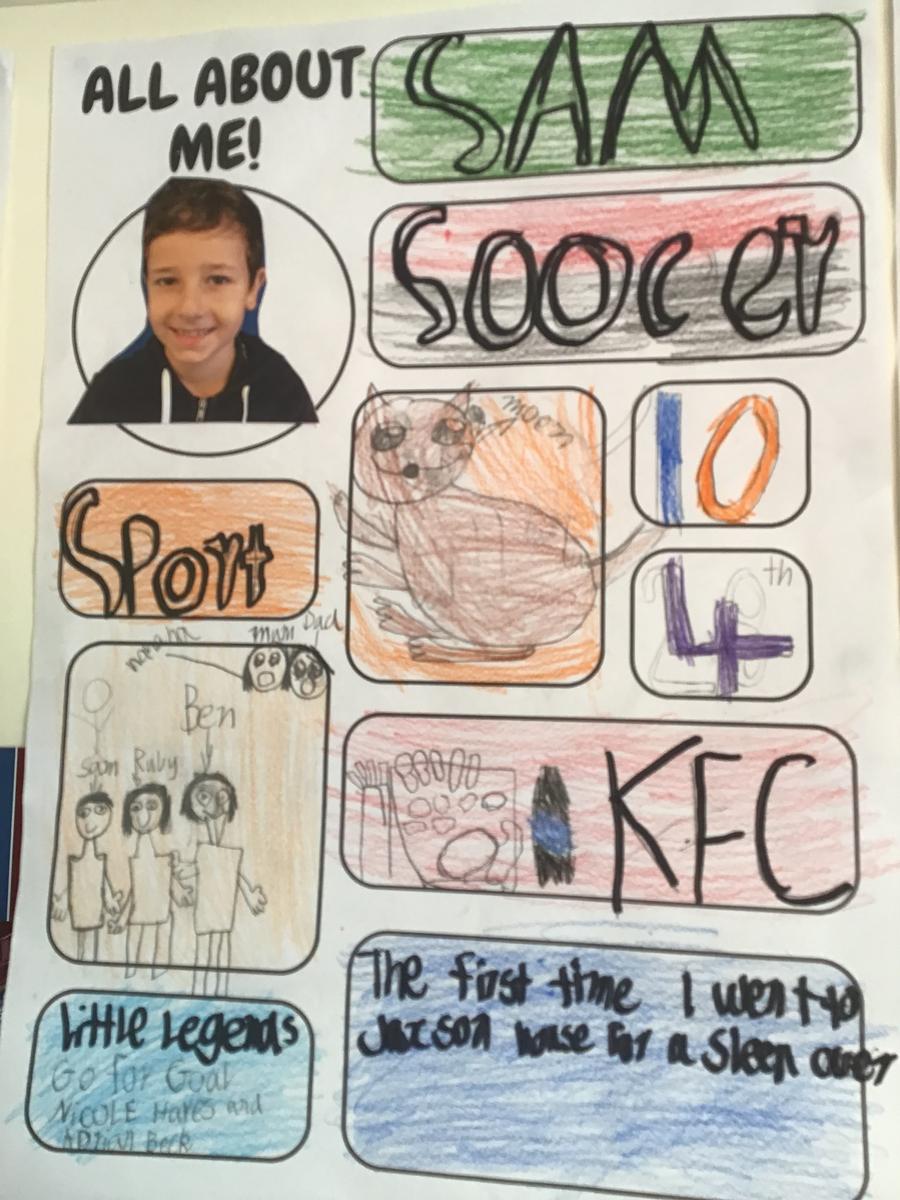 ALL ABOUT
ME!
SAM
Sooccer
moen
10
4th
Sport
mum Dad
Ben
Ruby
KFC
Little Legends
Go for Goal
NICOLE Hayes and
Beck
The first time I went to
Jackson house for a Sleep over